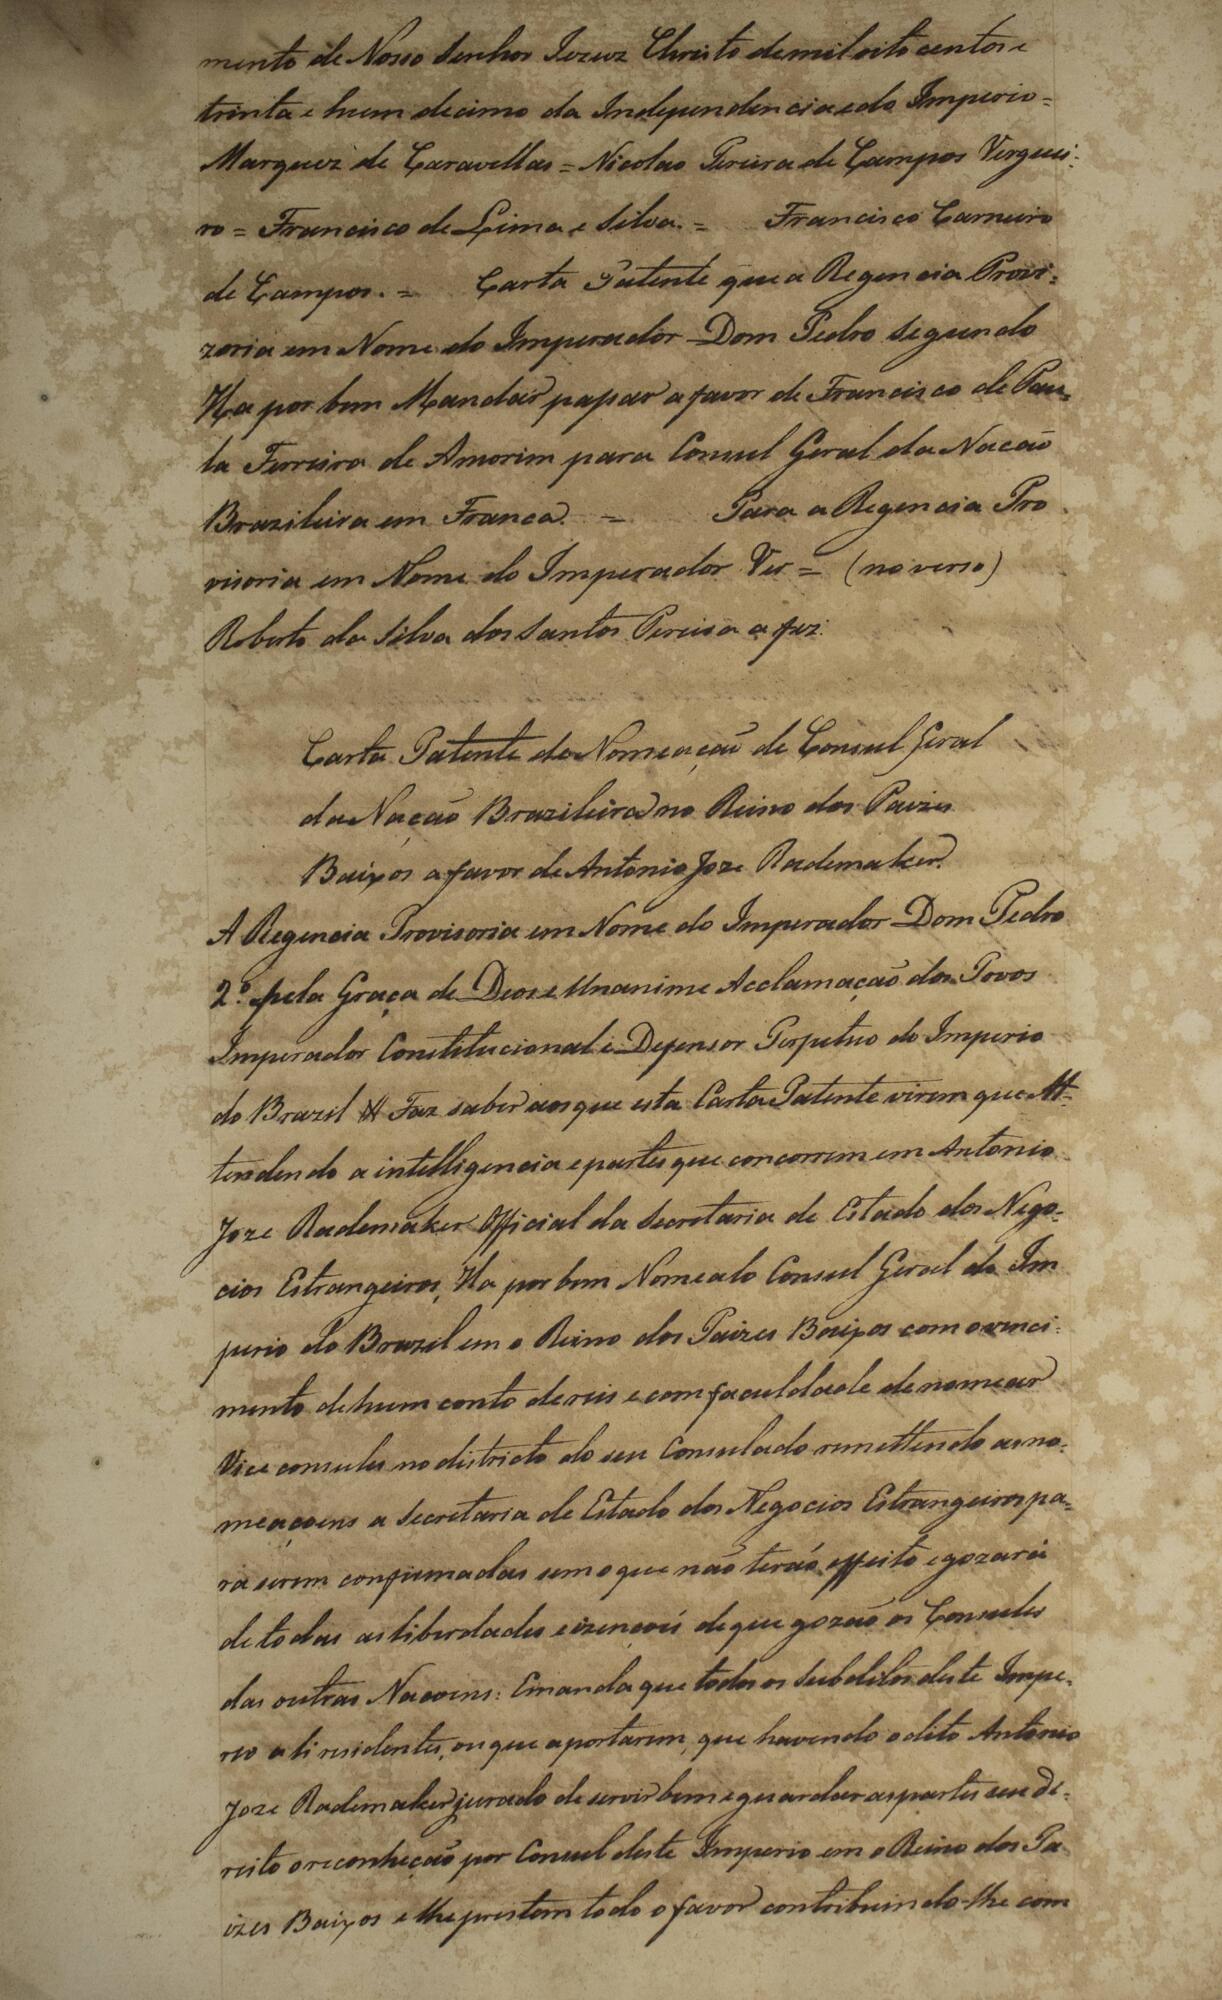 mento de Nosso Senhor Jezuz Christo de mil oito centos e
trinta e hum decimo da Independencia e do Imperio =
Marquez de Caravellas = Nicolao Pereira de Campos Verguei:
ro = Francisco de Lima e Silva. = Francisco Carneiro
de Campos. = Carta Patente que a Regencia Provi:
zoria em Nome do Imperador Dom Pedro Segundo
Ha por bem Mandar passar a favor de Francisco de Pau-
la Ferreira de Amorim para Consul Geral da Nacão
Brazileira em Franca. = Para a Regencia Pro
visoria em Nome do Imperador Ver = (no verso)
Roberto da Silva dos Santos Pereira a fez.
Carta Patente da Nomeação de Consul Geral
da Nação Brazileira no Reino dos Paizes
Baixos a favor de Antonio Joze Rademaker.
A Regencia Provisoria em Nome do Imperador Dom Pedro
2.º pela Graça de Deos e Unanime Acclamação dos Povos
Imperador Constitucional e Defensor Perpetuo do Imperio
do Brazil Faz saber aos que esta Carta Patente virem que At-
tendendo a intelligencia e partes que concorrem em Antonio
Joze Rademaker Official da Secretaria de Estado dos Nego-
cios Estrangeiros, Ha por bem Nomealo Consul Geral do Im
perio do Brazil em o Reino dos Paizes Baixos com o venci:
mento de hum conto de reis e com faculdade de nomear
Vice consules no districto do seu Consulado remettendo as no:
meaçoens a Secretaria de Estado dos Negocios Estrangeiros pa-
ra serem confirmadas sem o que não terão effeito e gozará
de todas as liberdades e izençoés de que gozão os Consules
das outras Nacoens: E manda que todos os Subditos deste Impe-
rio ali residentes, ou que aportarem, que havendo o dito Antonio
Joze Rademaker jurado de servir bem e guardar as partes seu di-
reito o reconheção por Consul deste Imperio em o Reino dos Pa
izes Baixos e lhe prestem todo o favor contribuindo-lhe com